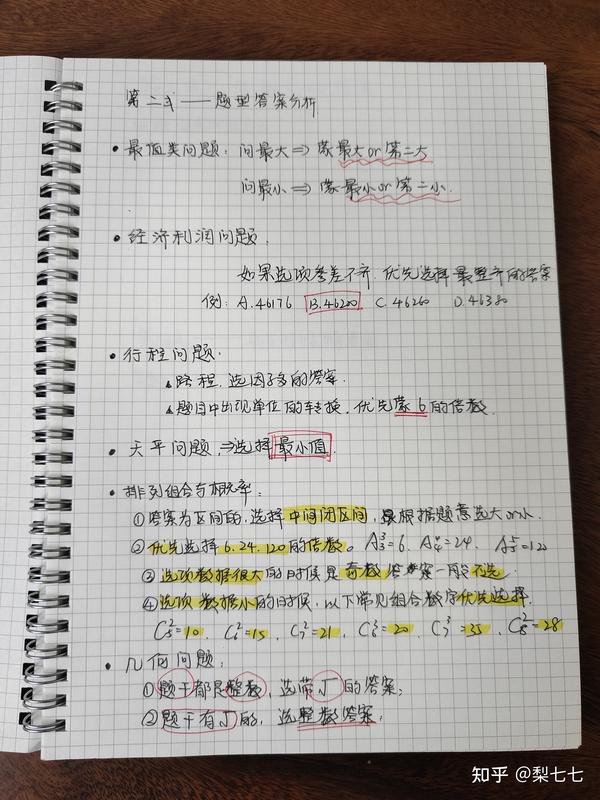 第二式——题型答案分析
• 最值类问题：问最大⇒蒙最大or第二大
问最小⇒蒙最小or第二小.
• 经济利润问题.
如果选项参差不齐,优先选择最整齐的答案
例: A.46176 B.46200 C.46260 D.46380
• 行程问题:
▲路程,选因子多的答案.
▲题目中出现单位的转换,优先蒙6的倍数.
• 天平问题,⇒选择最小值.
• 排列组合与概率:
①答案为区间的,选择中间闭区间,根据题意选大or小.
②优先选择6.24.120的倍数。A₃³=6. A₄⁴=24. A₅⁵=120
③选项数据很大的时候是奇数答案一般不选.
④选项数据小的时候,以下常见组合数字优先选择.
C₅²=10 C₆²=15. C₇²=21. C₆³=20 C₇³=35. C₈²=28
• 几何问题:
①题干都是整数,选带√的答案;
②题干有√的,选整数答案;
知乎 @梨七七